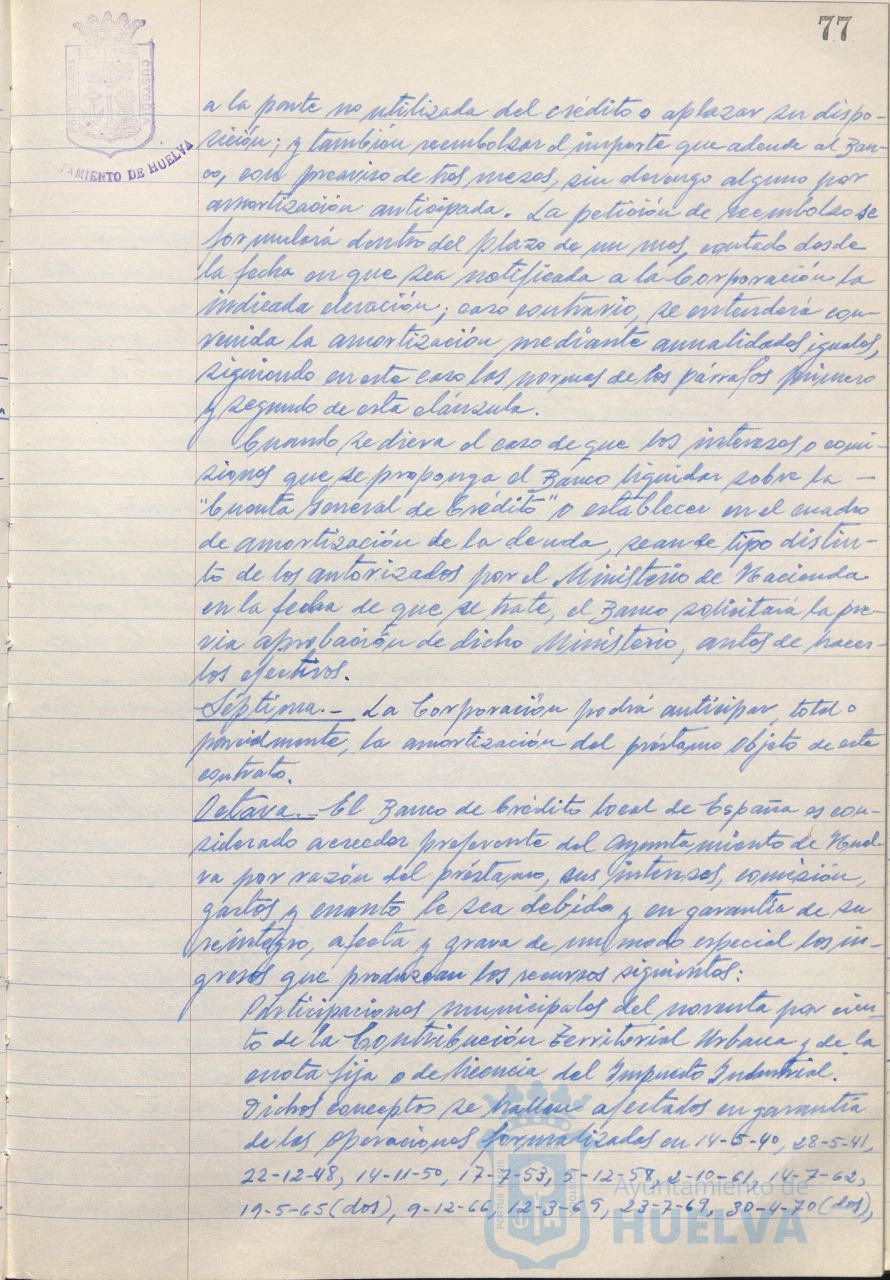 77
PORTUS MARIS ET TERRAE CUSTODIA
TAMIENTO DE HUELVA
a la parte no utilizada del crédito o aplazar su dispo-
sición; y también reembolsar el importe que adeude al Ban-
co, con preaviso de tres meses, sin devengo alguno por
amortización anticipada. La petición de reembolso se
formulará dentro del plazo de un mes, contado desde
la fecha en que sea notificada a la Corporación la
indicada elevación; caso contrario, se entenderá con-
venida la amortización mediante anualidades iguales,
siguiendo en este caso las normas de los párrafos primero
y segundo de esta cláusula.
Cuando se diera el caso de que los intereses o comi-
siones que se proponga el Banco liquidar sobre la —
"Cuenta General de Crédito" o establecer en el cuadro
de amortización de la deuda, sean de tipo distin-
to de los autorizados por el Ministerio de Hacienda
en la fecha de que se trate, el Banco solicitará la pre-
via aprobación de dicho Ministerio, antes de hacer-
los efectivos.
Séptima.- La Corporación podrá anticipar, total o
parcialmente, la amortización del préstamo objeto de este
contrato.
Octava.- El Banco de Crédito Local de España es con-
siderado acreedor preferente del Ayuntamiento de Huel-
va por razón del préstamo, sus intereses, comisión,
gastos y cuanto le sea debido y en garantía de su
reintegro, afecta y grava de un modo especial los in-
gresos que produzcan los recursos siguientes:
Participaciones municipales del noventa por cien-
to de la Contribución Territorial Urbana y de la
cuota fija o de licencia del Impuesto Industrial.
Dichos conceptos se hallan afectados en garantía
de las operaciones formalizadas en 14-5-40, 28-5-41,
22-12-48, 14-11-50, 17-7-53, 5-12-58, 2-10-61, 14-7-62,
19-5-65 (dos), 9-12-66, 12-3-69, 23-7-69, 30-4-70 (dos),
Ayuntamiento de
HUELVA